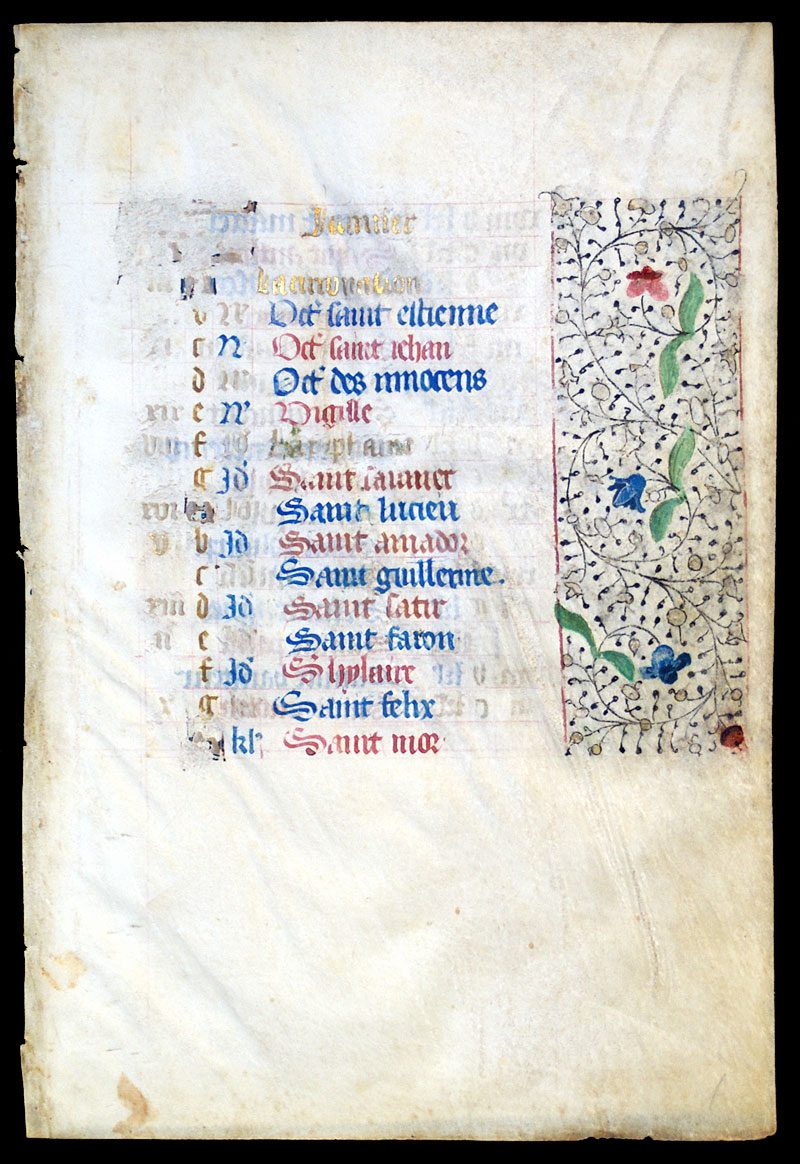 Januier
b N Oct' saint estienne
c N Oct' saint iehan
d Oct' des innocens
xiii e N' Vigille
f
g Jd'
Saint lucien
v b Jd' Saint amador
c Saint guillerme.
xiii d Jd' Saint satir
ii e Saint faron
f Jd' S hylaire
x g Saint felix
kl' Saint mor